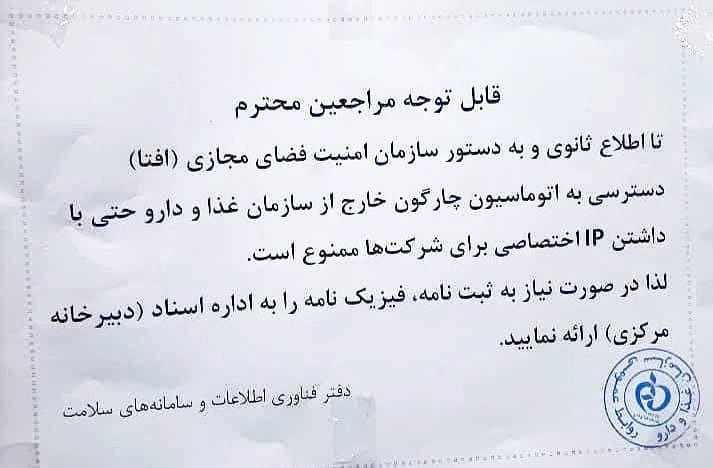 قابل توجه مراجعین محترم
تا اطلاع ثانوی و به دستور سازمان امنیت فضای مجازی (افتا)
دسترسی به اتوماسیون چارگون خارج از سازمان غذا و دارو حتی با
داشتن IP اختصاصی برای شرکت‌ها ممنوع است.
لذا در صورت نیاز به ثبت نامه، فیزیک نامه را به اداره اسناد (دبیرخانه
مرکزی) ارائه نمایید.
دفتر فناوری اطلاعات و سامانه‌های سلامت
سازمان غذا و دارو
روابط عمومی